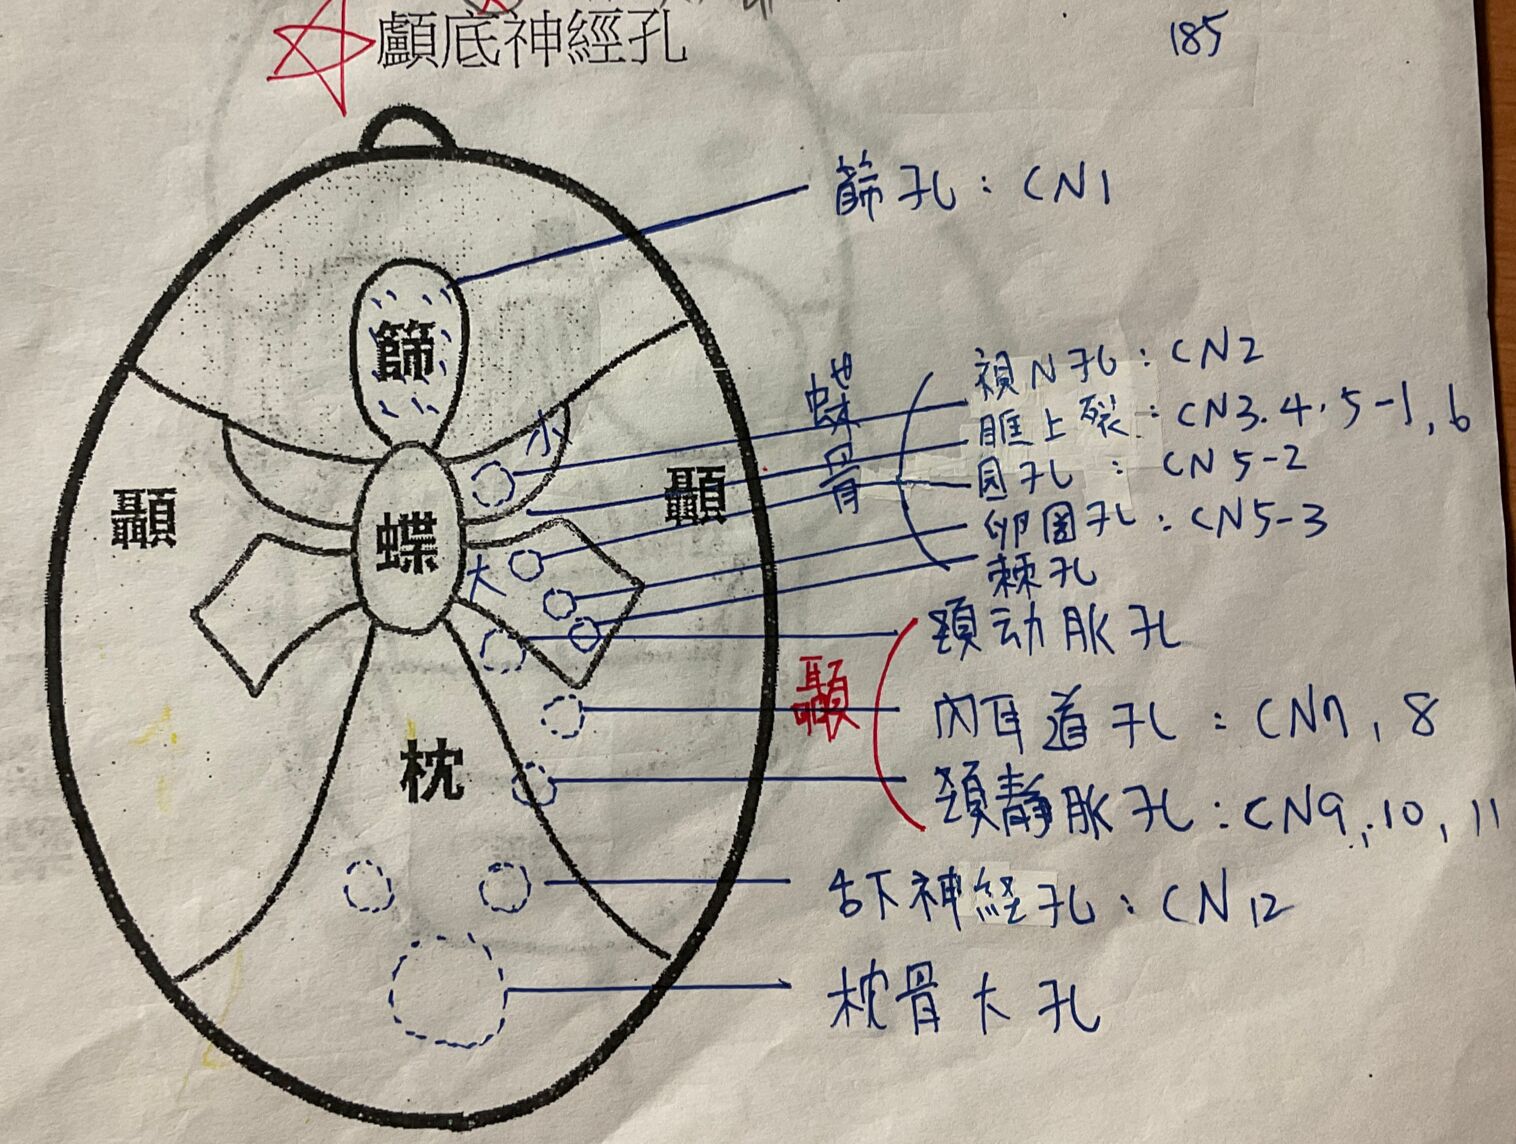 顱底神經孔
185
篩孔：CN1
篩
小
蝶骨
視N孔：CN2
眶上裂：CN3.4.5-1,6
圆孔：CN5-2
卵圆孔：CN5-3
棘孔
顳
蝶
顳
大
顳
頸动脈孔
內耳道孔：CN7,8
頸靜脈孔：CN9,10,11
枕
舌下神経孔：CN12
枕骨大孔